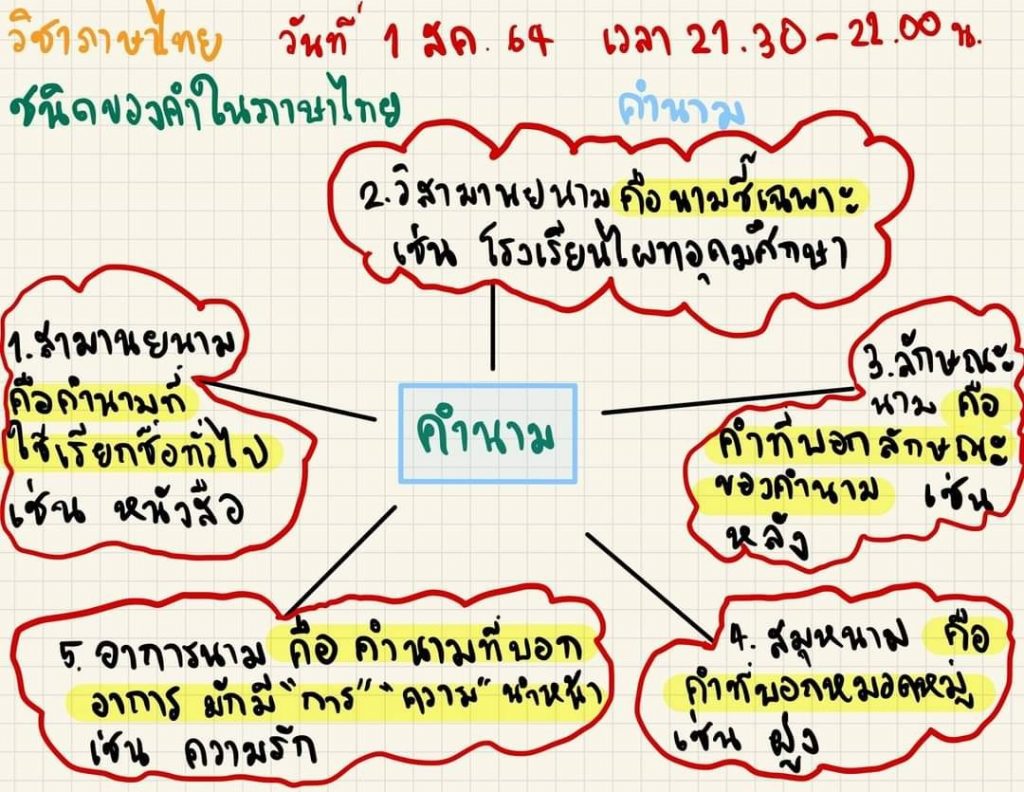 วิชาภาษาไทย วันที่ 1 สค. 64 เวลา 21.30-22.00 น.
ชนิดของคำในภาษาไทย คำนาม
2.วิสามานยนาม คือ นามชี้เฉพาะ
เช่น โรงเรียนไผทอุดมศึกษา
1.สามานยนาม
คือคำนามที่
ใช้เรียกชื่อทั่วไป
เช่น หนังสือ
คำนาม
3.ลักษณะ
นาม คือ
คำที่บอกลักษณะ
ของคำนาม เช่น
หลัง
5. อาการนาม คือ คำนามที่บอก
อาการ มักมี "การ" "ความ" นำหน้า
เช่น ความรัก
4. สมุหนาม คือ
คำที่บอกหมวดหมู่
เช่น ฝูง